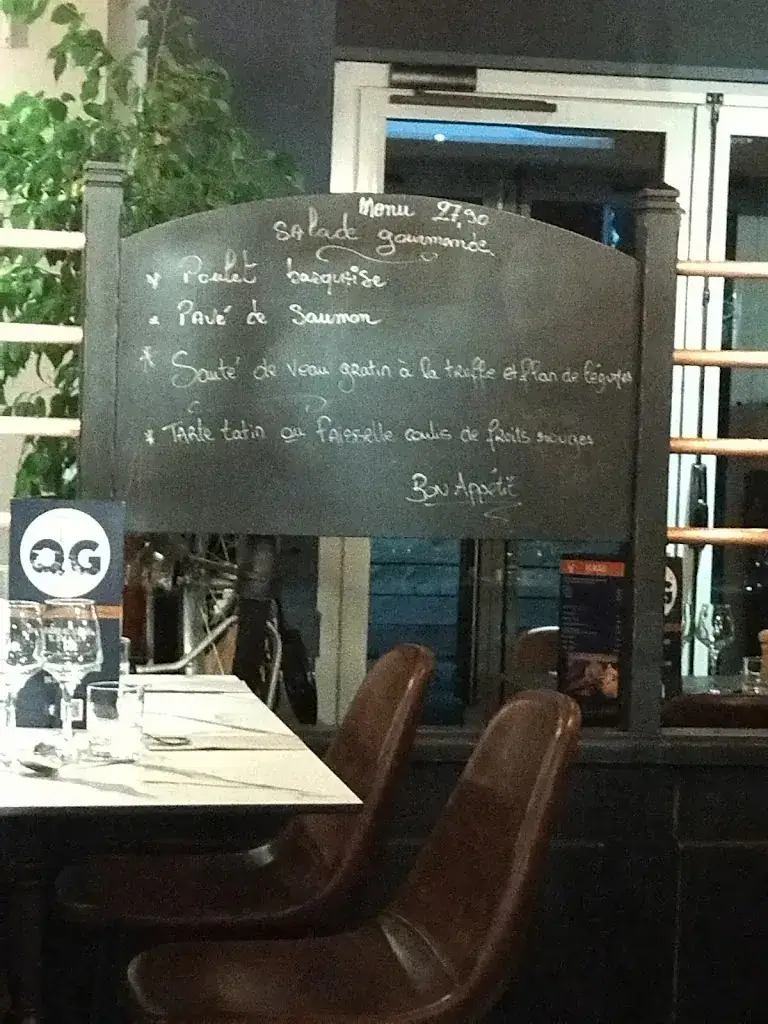 Menu 27,90
Salade gourmande
* Poulet basquaise
* Pavé de Saumon
* Sauté de veau gratin à la truffe et flan de légumes
* Tarte tatin ou Faisselle coulis de fruits rouges
Bon Appétit
QG